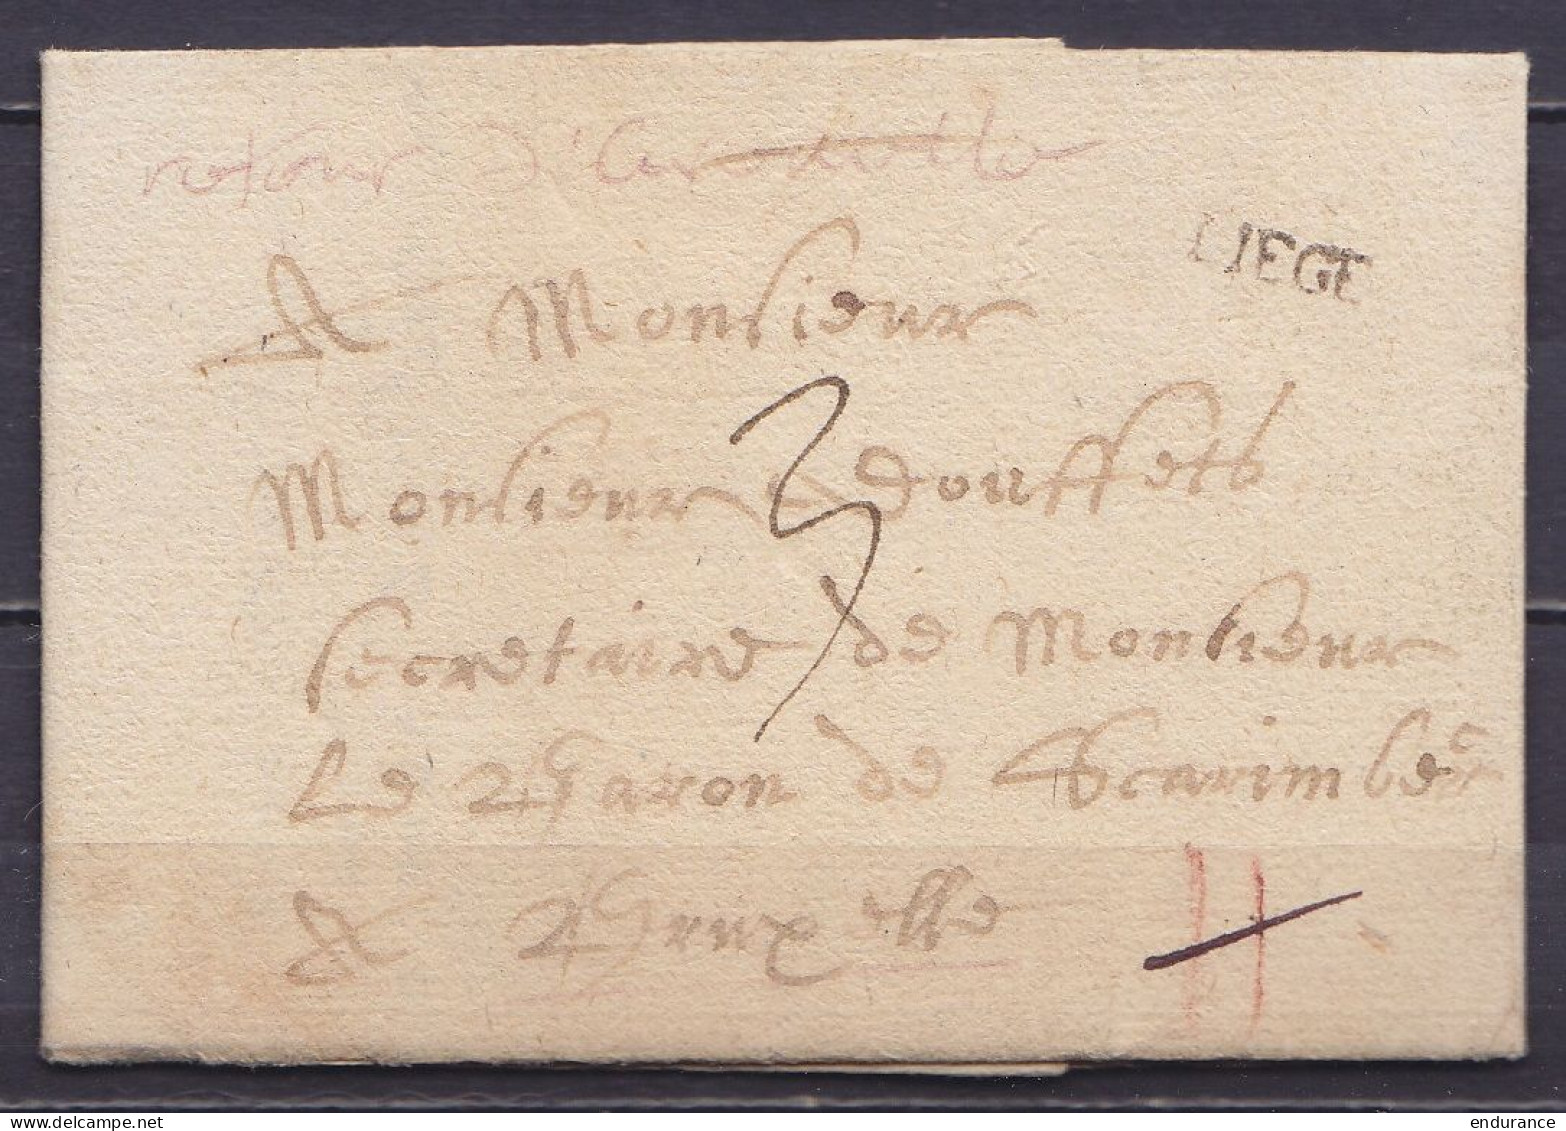 retour d'
LIEGE
A Monsieur
Monsieur douffets
secretaire de Monsieur
Le Baron de Scarimbec
A Bruxelle
3
endurance